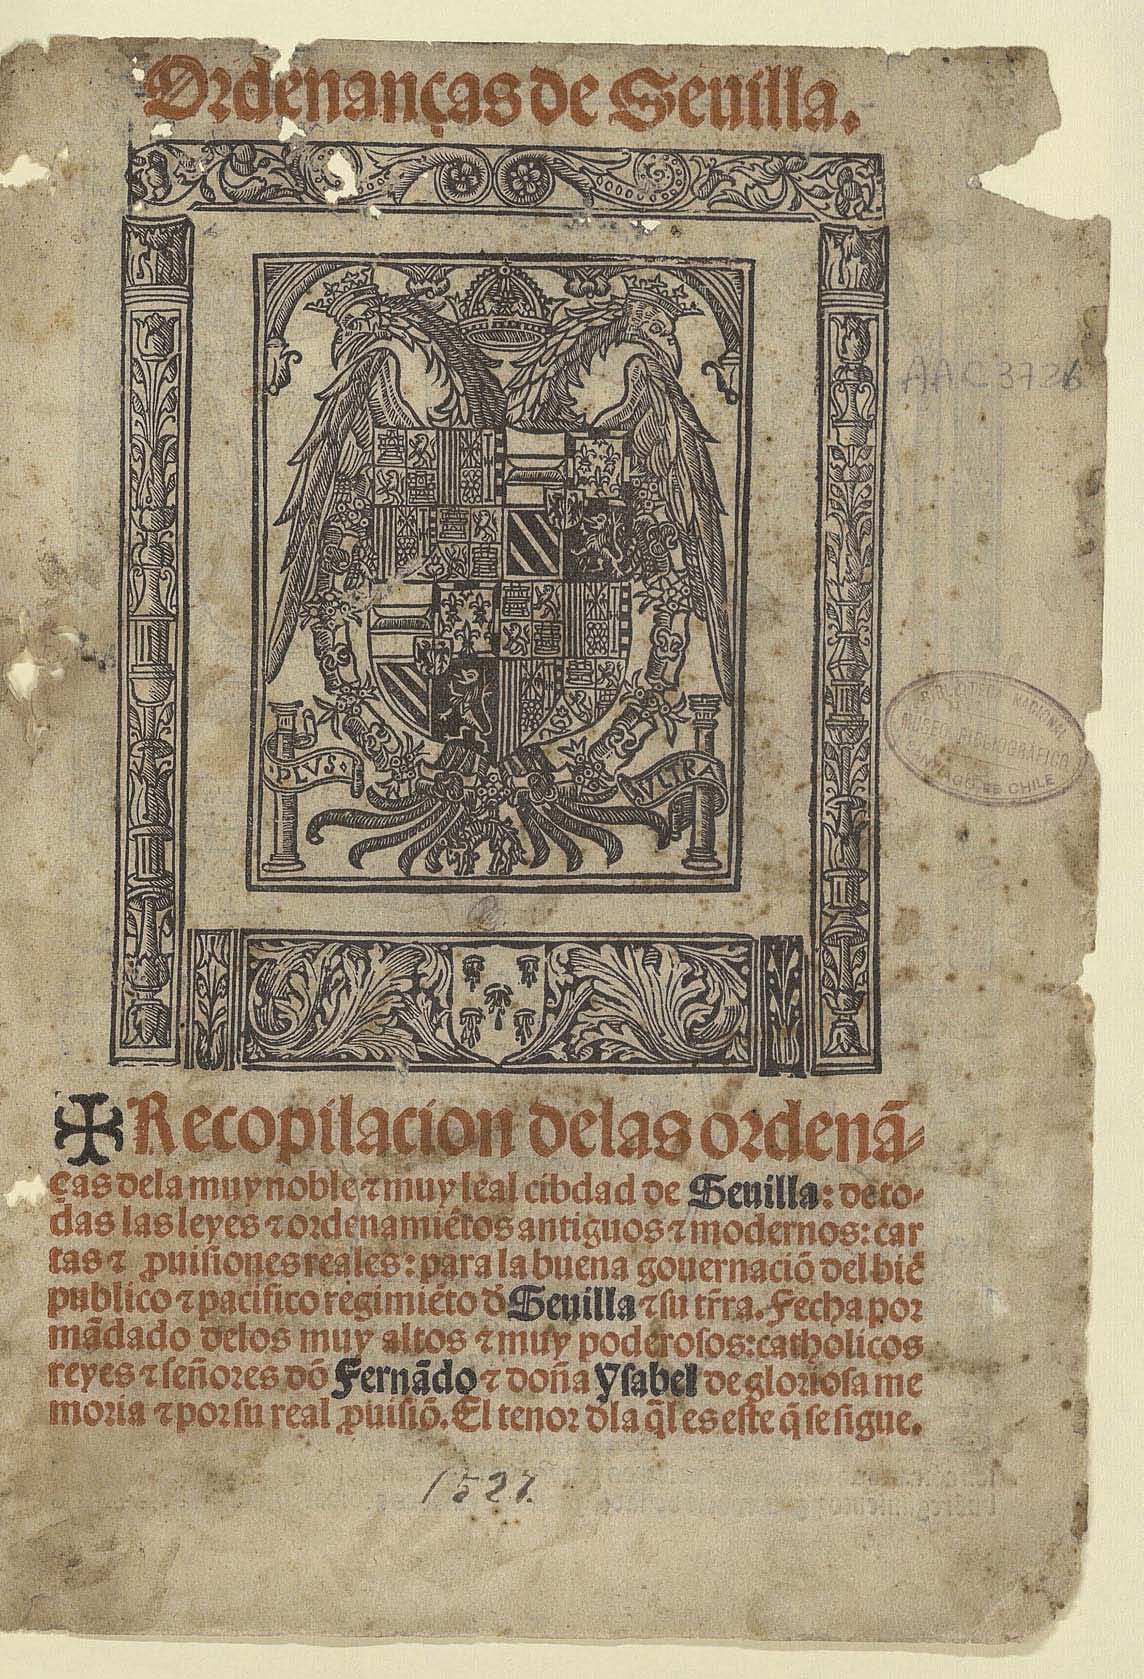 Ordenanças de Seuilla.
AAC 373
·PLVS·
VLTRA
BIBLIOTECA NACIONAL
MUSEO BIBLIOGRÁFICO
SANTIAGO DE CHILE
✠ Recopilacion delas ordenã-
ças dela muy noble ⁊ muy leal cibdad de Seuilla: de to-
das las leyes ⁊ ordenamiẽtos antiguos ⁊ modernos: car
tas ⁊ ꝓuisiones reales: para la buena gouernaciõ del biẽ
publico ⁊ pacifico regimiẽto d̃ Seuilla ⁊ su tr̃ra. Fecha por
mãdado delos muy altos ⁊ muy poderosos: catholicos
reyes ⁊ señores dõ Fernãdo ⁊ doña Ysabel de gloriosa me
moria ⁊ por su real ꝓuisiõ. El tenor dla q̃l es este q̃ se sigue.
1527.